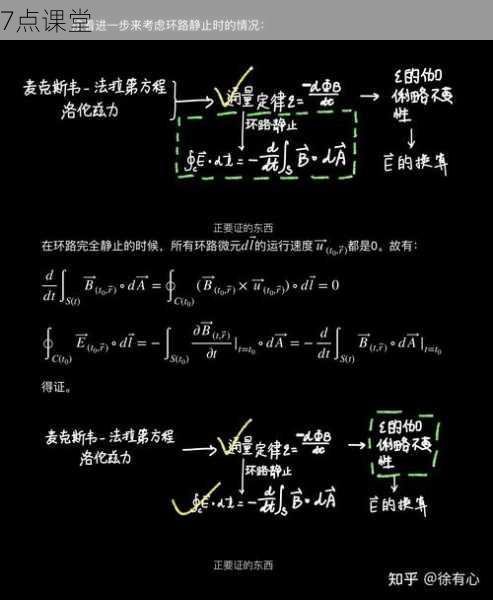 7点课堂
着进一步来考虑环路静止时的情况：
麦克斯韦-法拉第方程
洛伦兹力
通量定律ε=-dΦB/dt
ε的伽利略不变性
环路静止
∮_c E⃗·dl⃗=-d/dt∫_s B⃗·dA⃗
E⃗的换算
正要证的东西
在环路完全静止的时候，所有环路微元dl⃗的运行速度u⃗_(t₀,r⃗)都是0。故有：
d/dt ∫_S(t) B⃗_(t₀,r⃗)∘dA⃗ = ∮_C(t₀) (B⃗_(t₀,r⃗) × u⃗_(t₀,r⃗))∘dl⃗ = 0
∮_C(t₀) E⃗_(t₀,r⃗)∘dl⃗ = -∫_S(t₀) ∂B⃗_(t,r⃗)/∂t|_t=t₀∘dA⃗ = -d/dt ∫_S(t) B⃗_(t,r⃗)∘dA⃗|_t=t₀
得证。
麦克斯韦-法拉第方程
洛伦兹力
通量定律ε=-dΦB/dt
ε的伽利略不变性
环路静止
∮_c E⃗·dl⃗=-d/dt∫_s B⃗·dA⃗
E⃗的换算
正要证的东西
知乎 @徐有心